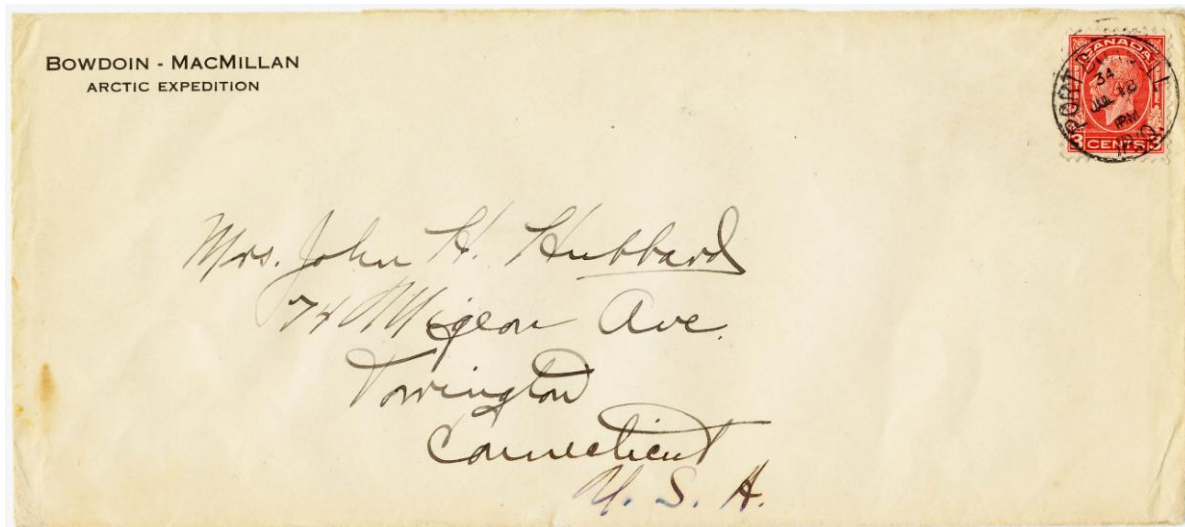 BOWDOIN - MACMILLAN
ARCTIC EXPEDITION
CANADA
3 CENTS 3
PORT
34
JUL 18
PM
Mrs. John H. Hubbard
74 Migeon Ave.
Torrington
Connecticut
U. S. A.